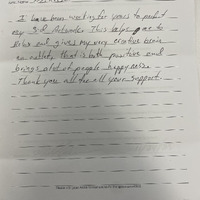 I have been working for years to perfect
my 3rd Automatic This helps me to
Relax and gives my very creative brain
an outlet, that is both positive and
brings alot of people happyness.
Thank you all for all your support.